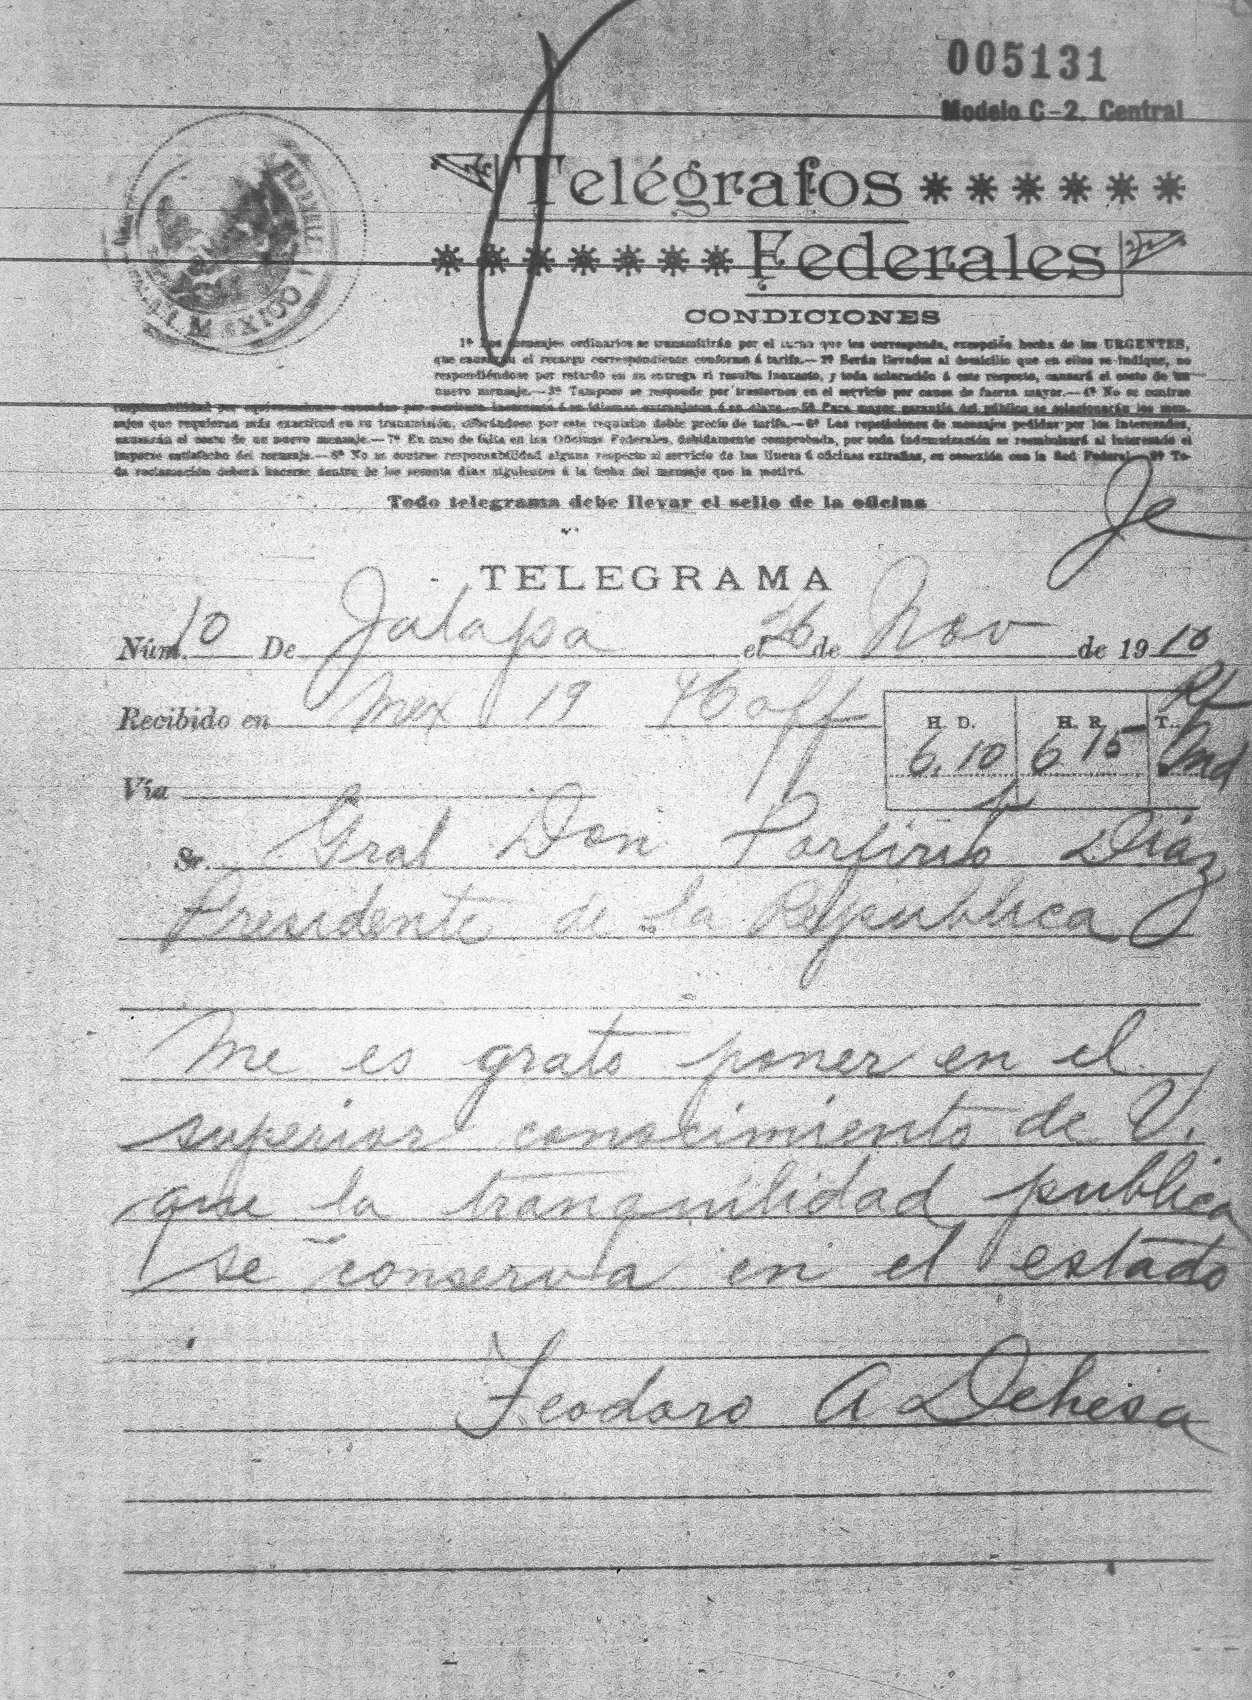 005131
Modelo C-2. Central
Telégrafos
Federales
MEXICO
CONDICIONES
1ª Los mensajes ordinarios se transmitirán por el turno que les corresponda, excepción hecha de los URGENTES,
que causarán el recargo correspondiente conforme á tarifa.—2ª Serán llevados al domicilio que en ellos se indique, no
respondiéndose por retardo en su entrega si resulta inexacto, y toda aclaración á este respecto, causará el costo de un
nuevo mensaje.—3ª Tampoco se responde por trastornos en el servicio por causa de fuerza mayor.—4ª No se contrae
responsabilidad por equivocaciones causadas por escritura incorrecta ó en idiomas extranjeros ó en clave.—5ª Para mayor garantía del público se colacionarán los men-
sajes que requieran más exactitud en su transmisión, cobrándose por este requisito doble precio de tarifa.—6ª Las repeticiones de mensajes pedidas por los interesados,
causarán el costo de un nuevo mensaje.—7ª En caso de falta en las Oficinas Federales, debidamente comprobada, por toda indemnización se reembolsará al interesado el
importe satisfecho del mensaje.—8ª No se contrae responsabilidad alguna respecto al servicio de las líneas ú oficinas extrañas, en conexión con la Red Federal.—9ª To-
da reclamación deberá hacerse dentro de los sesenta días siguientes á la fecha del mensaje que la motive.
Todo telegrama debe llevar el sello de la oficina
TELEGRAMA
Núm. 10 De Jalapa el 26 de Nov de 1910
Recibido en Mex 19 46 off
H. D. H. R. T.
6.10 6 15
Vía
Sr. Gral Don Porfirio Diaz
Presidente de la Republica
Me es grato poner en el
superior conocimiento de V.
que la tranquilidad publica
se conserva en el estado
Teodoro A Dehesa